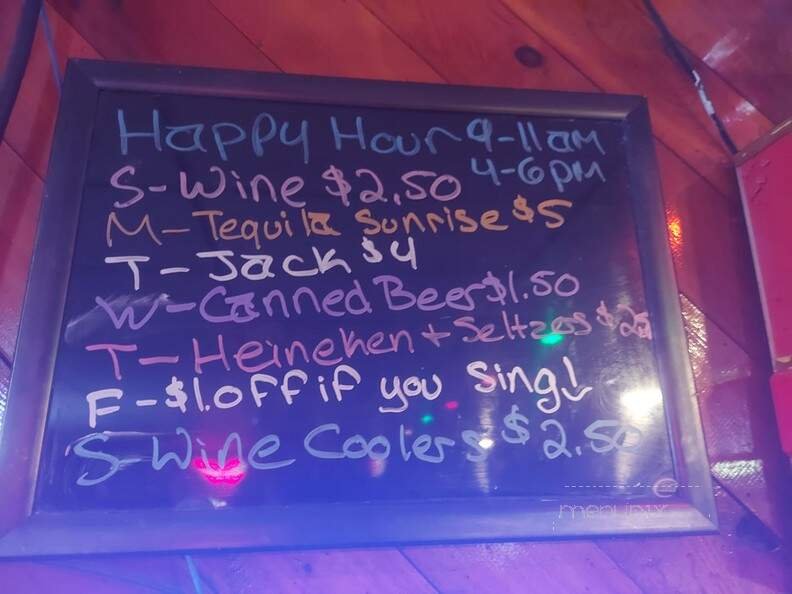 Happy Hour 9-11am
4-6pm
S-Wine $2.50
M-Tequila Sunrise $5
T-Jack $4
W-Canned Beer $1.50
T-Heineken + Seltzos
F-$1.off if you sing!
S-Wine Coolers $2.50
menupix